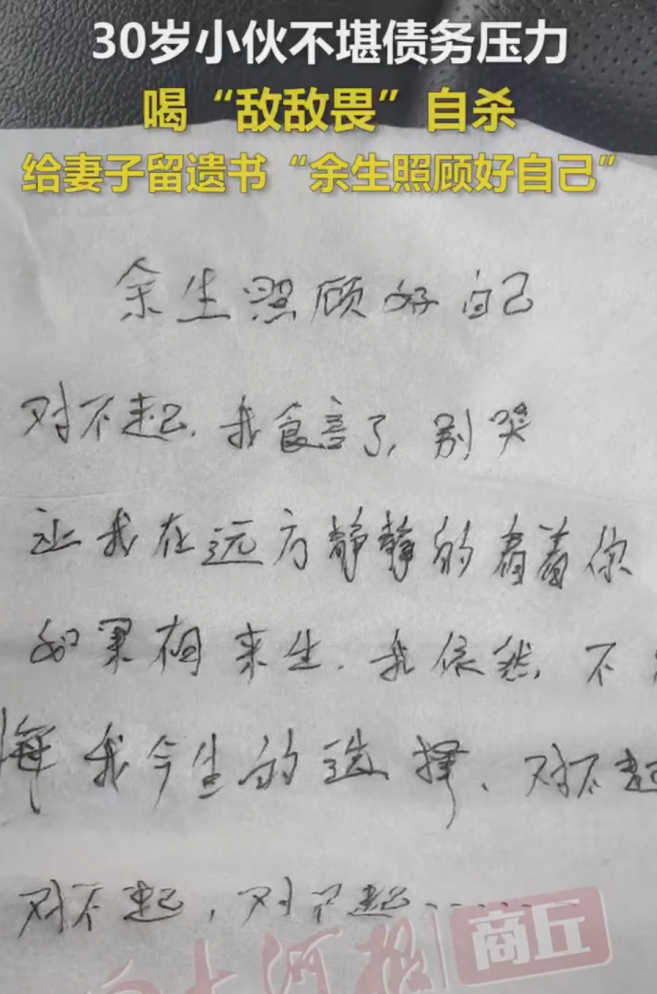 30岁小伙不堪债务压力
喝“敌敌畏”自杀
给妻子留遗书“余生照顾好自己”
余生照顾好自己
对不起，我食言了，别哭
让我在远方静静的看着你
如果有来生，我依然，不
悔我今生的选择、对不起
对不起，对不起……
大河报
商丘